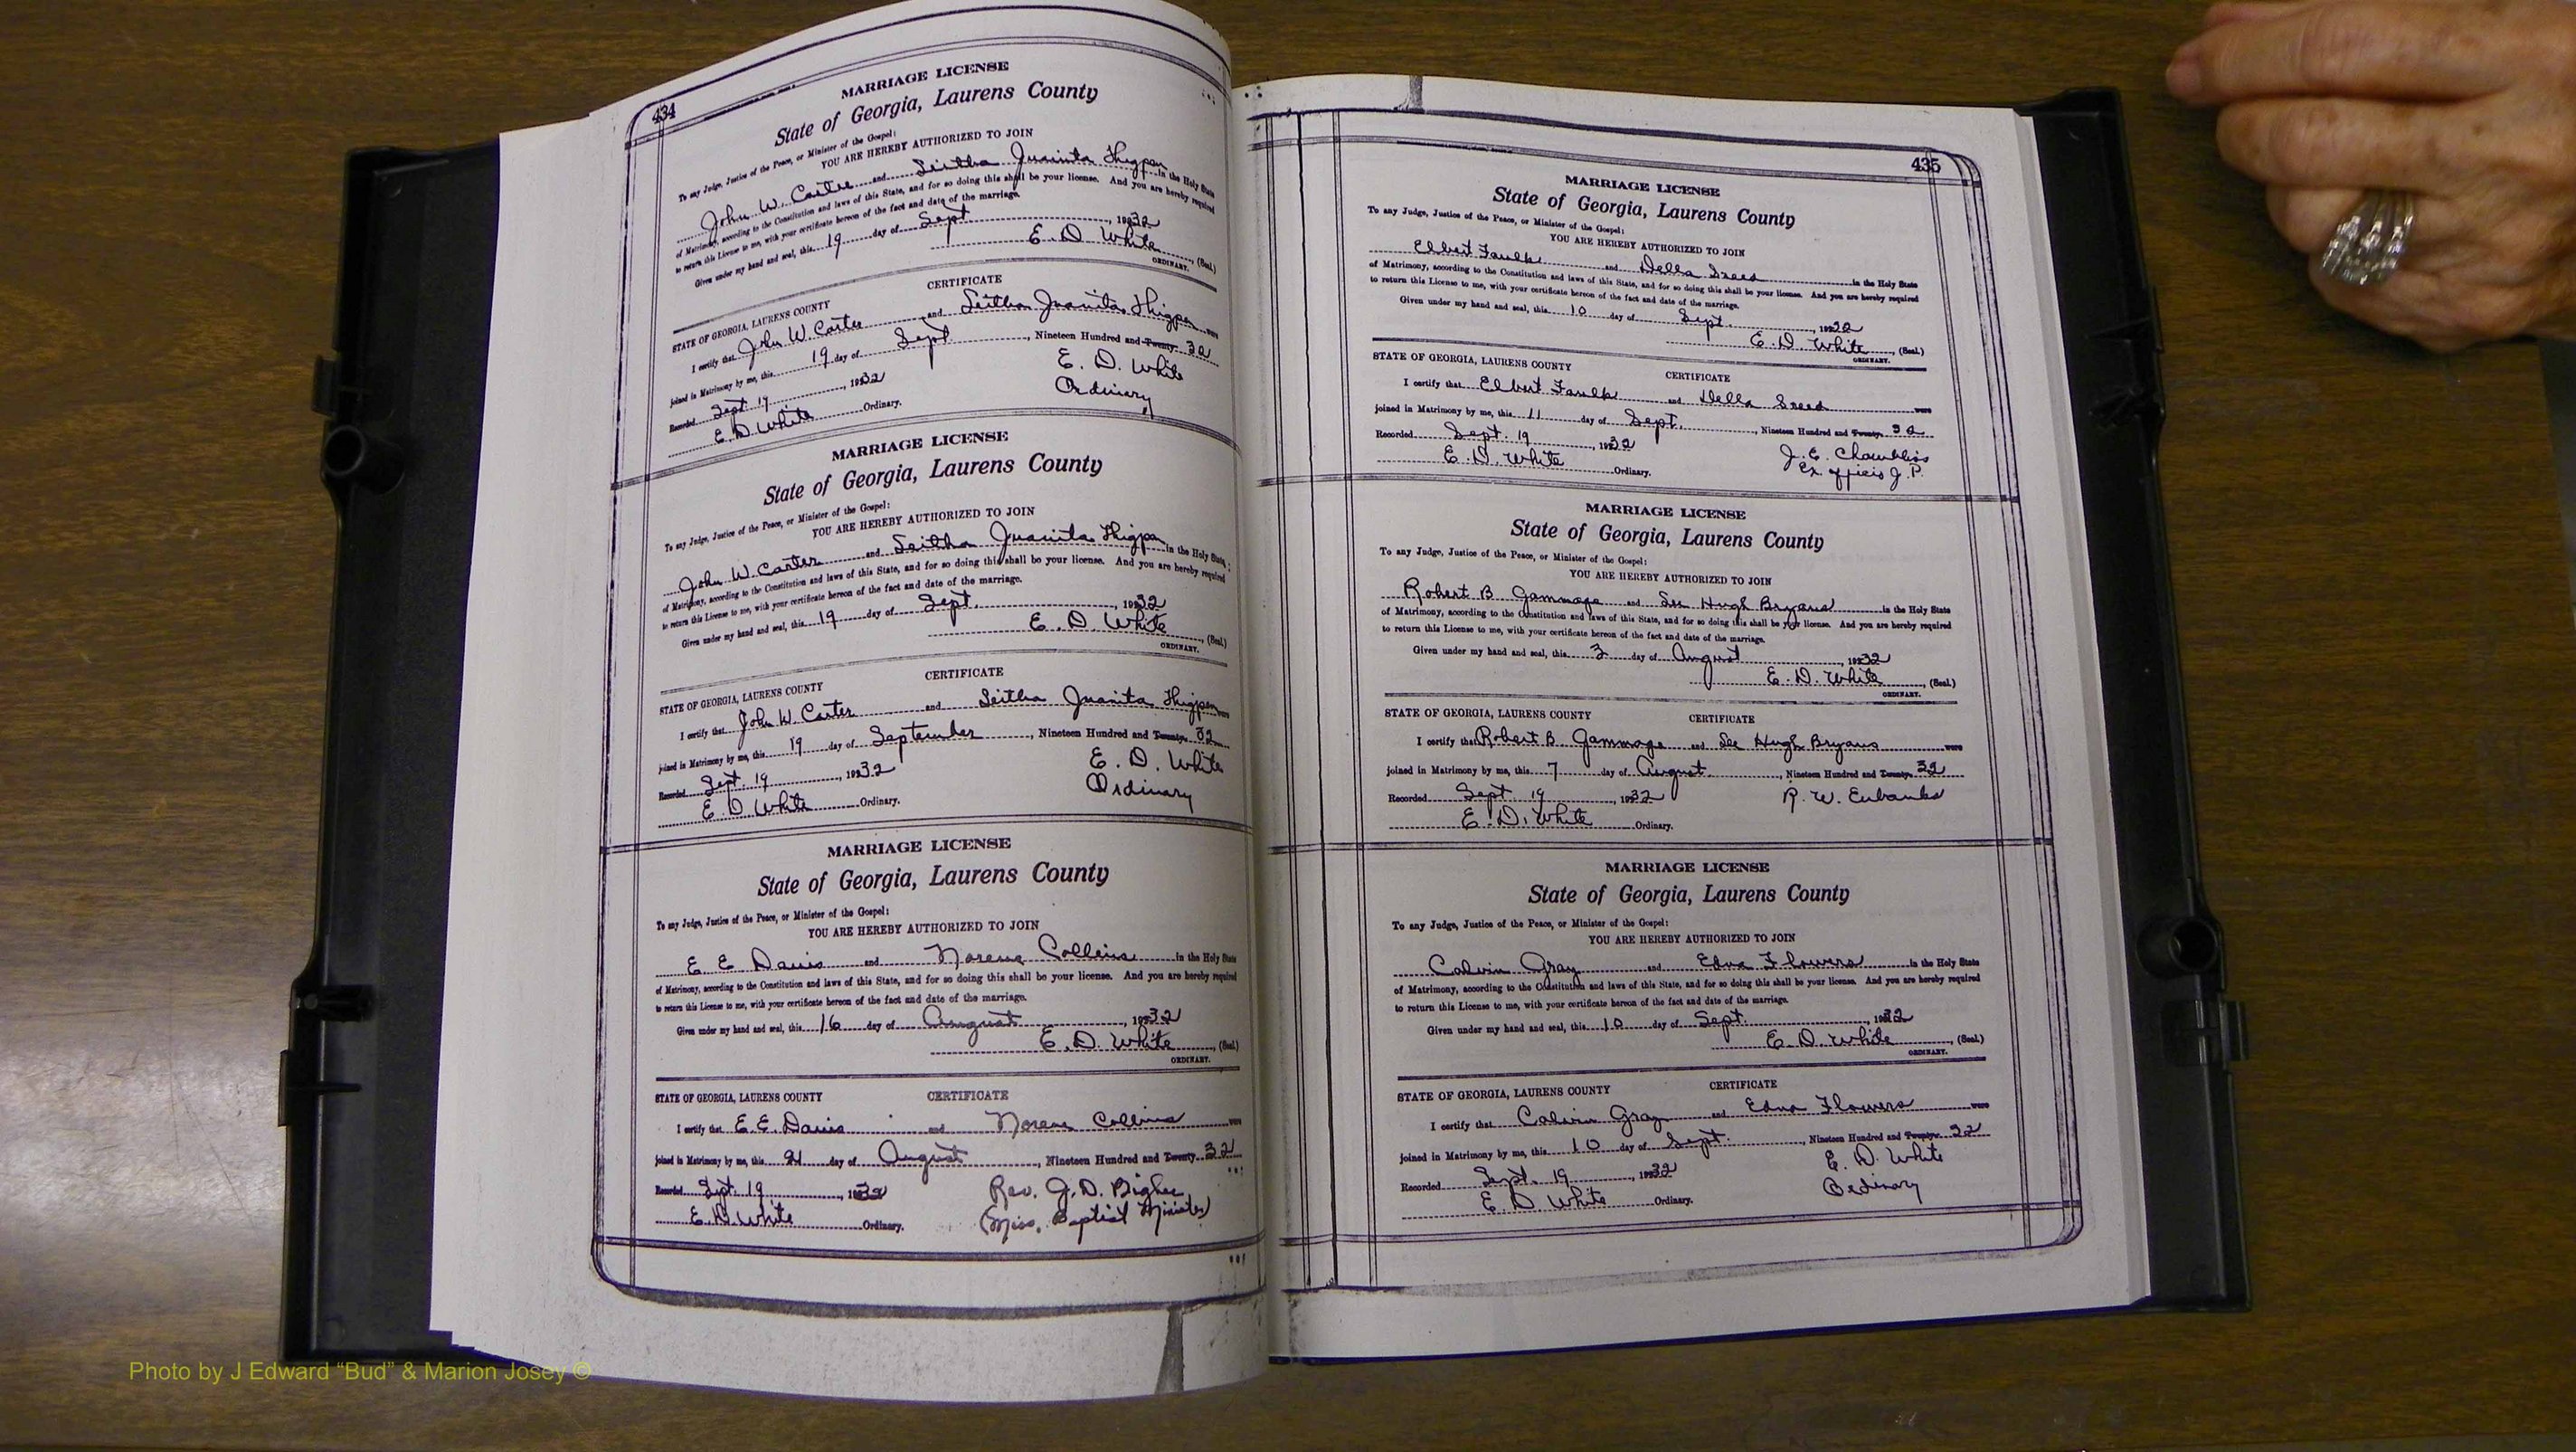 434
MARRIAGE LICENSE
State of Georgia, Laurens County
To any Judge, Justice of the Peace, or Minister of the Gospel:
YOU ARE HEREBY AUTHORIZED TO JOIN
John W. Carter and Seitha Juanita Thigpen in the Holy State
of Matrimony, according to the Constitution and laws of this State, and for so doing this shall be your license. And you are hereby required
to return this License to me, with your certificate hereon of the fact and date of the marriage.
Given under my hand and seal, this 19 day of Sept, 1932
E. D. White, (Seal)
ORDINARY.
CERTIFICATE
STATE OF GEORGIA, LAURENS COUNTY
I certify that John W. Carter and Seitha Juanita Thigpen were
joined in Matrimony by me, this 19 day of Sept, Nineteen Hundred and Twenty 32
Recorded Sept 19, 1932 E. D. White
E. D. White Ordinary. Ordinary
MARRIAGE LICENSE
State of Georgia, Laurens County
To any Judge, Justice of the Peace, or Minister of the Gospel:
YOU ARE HEREBY AUTHORIZED TO JOIN
John W. Carter and Seitha Juanita Thigpen in the Holy State
of Matrimony, according to the Constitution and laws of this State, and for so doing this shall be your license. And you are hereby required
to return this License to me, with your certificate hereon of the fact and date of the marriage.
Given under my hand and seal, this 19 day of Sept., 1932
E. D. White, (Seal)
ORDINARY.
CERTIFICATE
STATE OF GEORGIA, LAURENS COUNTY
I certify that John W. Carter and Seitha Juanita Thigpen were
joined in Matrimony by me, this 19 day of September, Nineteen Hundred and Twenty 32
Recorded Sept. 19, 1932 E. D. White
E. D. White Ordinary. Ordinary
MARRIAGE LICENSE
State of Georgia, Laurens County
To any Judge, Justice of the Peace, or Minister of the Gospel:
YOU ARE HEREBY AUTHORIZED TO JOIN
E. E. Davis and Norene Collins in the Holy State
of Matrimony, according to the Constitution and laws of this State, and for so doing this shall be your license. And you are hereby required
to return this License to me, with your certificate hereon of the fact and date of the marriage.
Given under my hand and seal, this 16 day of August, 1932
E. D. White, (Seal)
ORDINARY.
STATE OF GEORGIA, LAURENS COUNTY CERTIFICATE
I certify that E. E. Davis and Norene Collins were
joined in Matrimony by me, this 21 day of August, Nineteen Hundred and Twenty 32
Recorded Sept. 19, 1932 Rev. J. D.
E. D. White Ordinary. (Miss. Baptist Minister)
435
MARRIAGE LICENSE
State of Georgia, Laurens County
To any Judge, Justice of the Peace, or Minister of the Gospel:
YOU ARE HEREBY AUTHORIZED TO JOIN
Elbert Faulk and Della in the Holy State
of Matrimony, according to the Constitution and laws of this State, and for so doing this shall be your license. And you are hereby required
to return this License to me, with your certificate hereon of the fact and date of the marriage.
Given under my hand and seal, this 10 day of Sept., 1932
E. D. White, (Seal)
ORDINARY.
STATE OF GEORGIA, LAURENS COUNTY CERTIFICATE
I certify that Elbert Faulk and Della were
joined in Matrimony by me, this 11 day of Sept., Nineteen Hundred and Twenty 32
Recorded Sept. 19, 1932 J. E. Chambliss
E. D. White Ordinary. Ex officio J. P.
MARRIAGE LICENSE
State of Georgia, Laurens County
To any Judge, Justice of the Peace, or Minister of the Gospel:
YOU ARE HEREBY AUTHORIZED TO JOIN
Robert B Gammage and Hugh Bryans in the Holy State
of Matrimony, according to the Constitution and laws of this State, and for so doing this shall be your license. And you are hereby required
to return this License to me, with your certificate hereon of the fact and date of the marriage.
Given under my hand and seal, this 3 day of August, 1932
E. D. White, (Seal)
ORDINARY.
STATE OF GEORGIA, LAURENS COUNTY CERTIFICATE
I certify that Robert B. Gammage and Hugh Bryans were
joined in Matrimony by me, this 7 day of August, Nineteen Hundred and Twenty 32
Recorded Sept. 19, 1932 R. W. Eubanks
E. D. White Ordinary.
MARRIAGE LICENSE
State of Georgia, Laurens County
To any Judge, Justice of the Peace, or Minister of the Gospel:
YOU ARE HEREBY AUTHORIZED TO JOIN
Calvin Gray and Edna Flowers in the Holy State
of Matrimony, according to the Constitution and laws of this State, and for so doing this shall be your license. And you are hereby required
to return this License to me, with your certificate hereon of the fact and date of the marriage.
Given under my hand and seal, this 10 day of Sept., 1932
E. D. White, (Seal)
ORDINARY.
STATE OF GEORGIA, LAURENS COUNTY CERTIFICATE
I certify that Calvin Gray and Edna Flowers were
joined in Matrimony by me, this 10 day of Sept., Nineteen Hundred and Twenty 32
Recorded Sept. 19, 1932 E. D. White
E. D. White Ordinary. Ordinary
Photo by J Edward “Bud” & Marion Josey ©